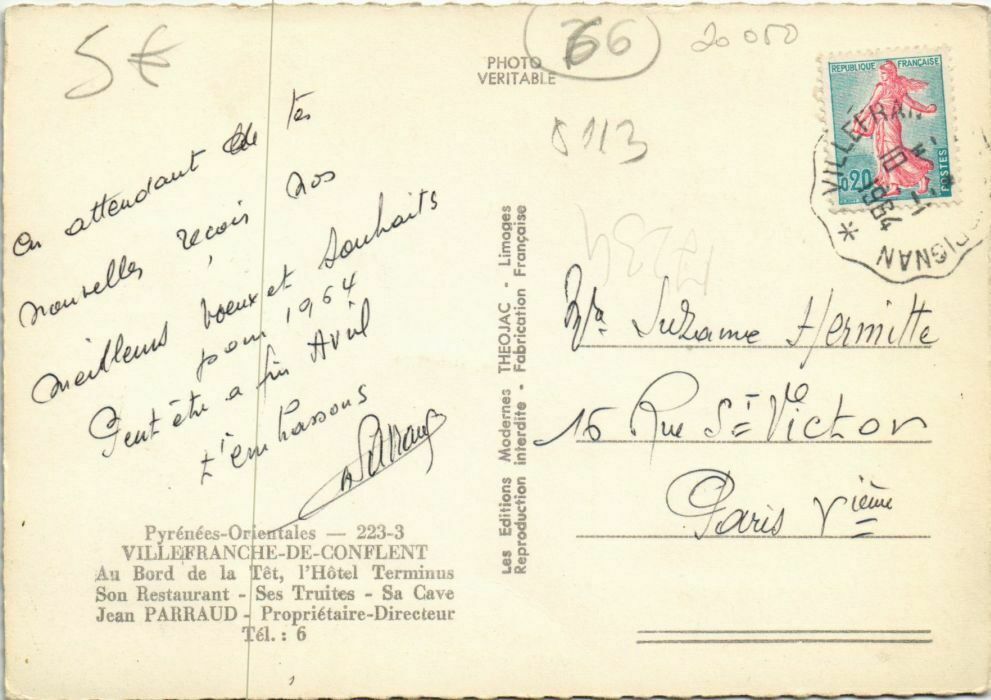 5€
66
20 050
PHOTO
VERITABLE
REPUBLIQUE FRANÇAISE
0,20
POSTES
VILLEFRAN
PIGNAN
10 H
1964
En attendant de tes
nouvelles reçois nos
meilleurs voeux et souhaits
pour 1964
Peut être a fin Avril
t'embrassons
Pyrénées-Orientales — 223-3
VILLEFRANCHE-DE-CONFLENT
Au Bord de la Têt, l'Hôtel Terminus
Son Restaurant - Ses Truites - Sa Cave
Jean PARRAUD - Propriétaire-Directeur
Tél. : 6
Les Editions Modernes THEOJAC - Limoges
Reproduction interdite - Fabrication Française
Suzanne Hermitte
16 Rue St Victor
Paris Vième